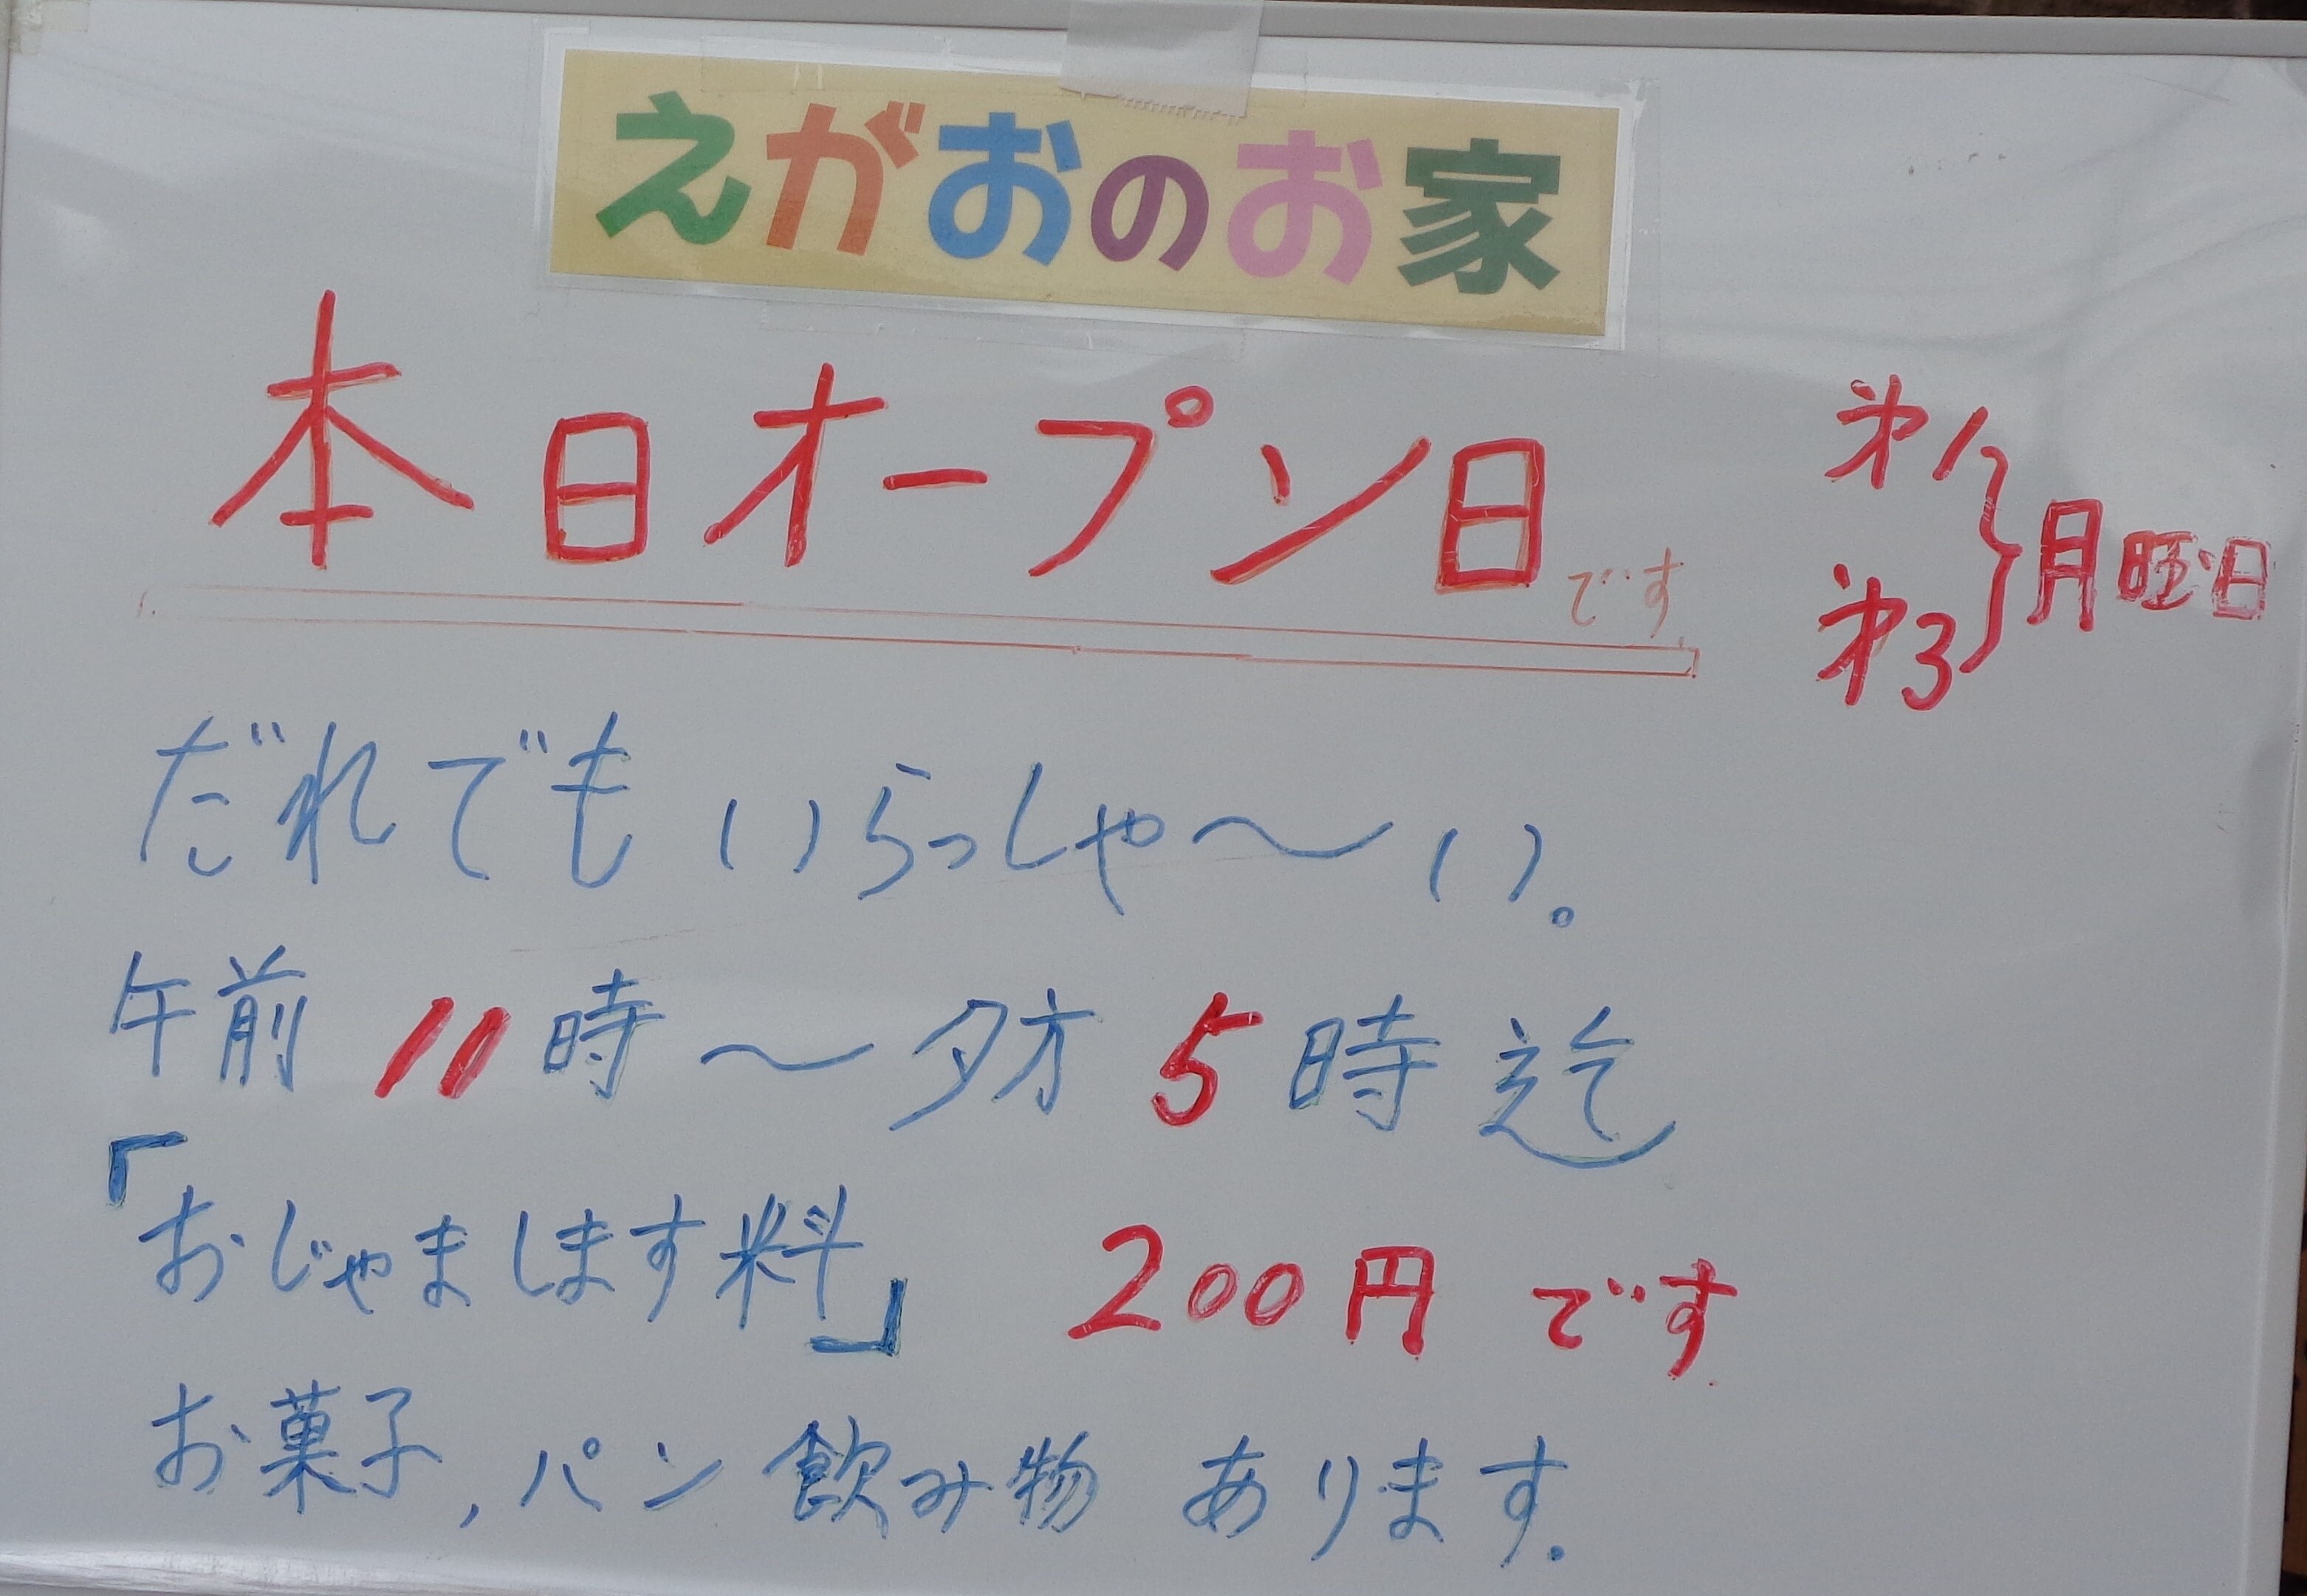 えがおのお家
本日オープン日です
第1
第3
月曜日
だれでもいらっしゃ〜い。
午前11時〜夕方5時迄
「おじゃまします料」 200円です
お菓子,パン 飲み物 あります.